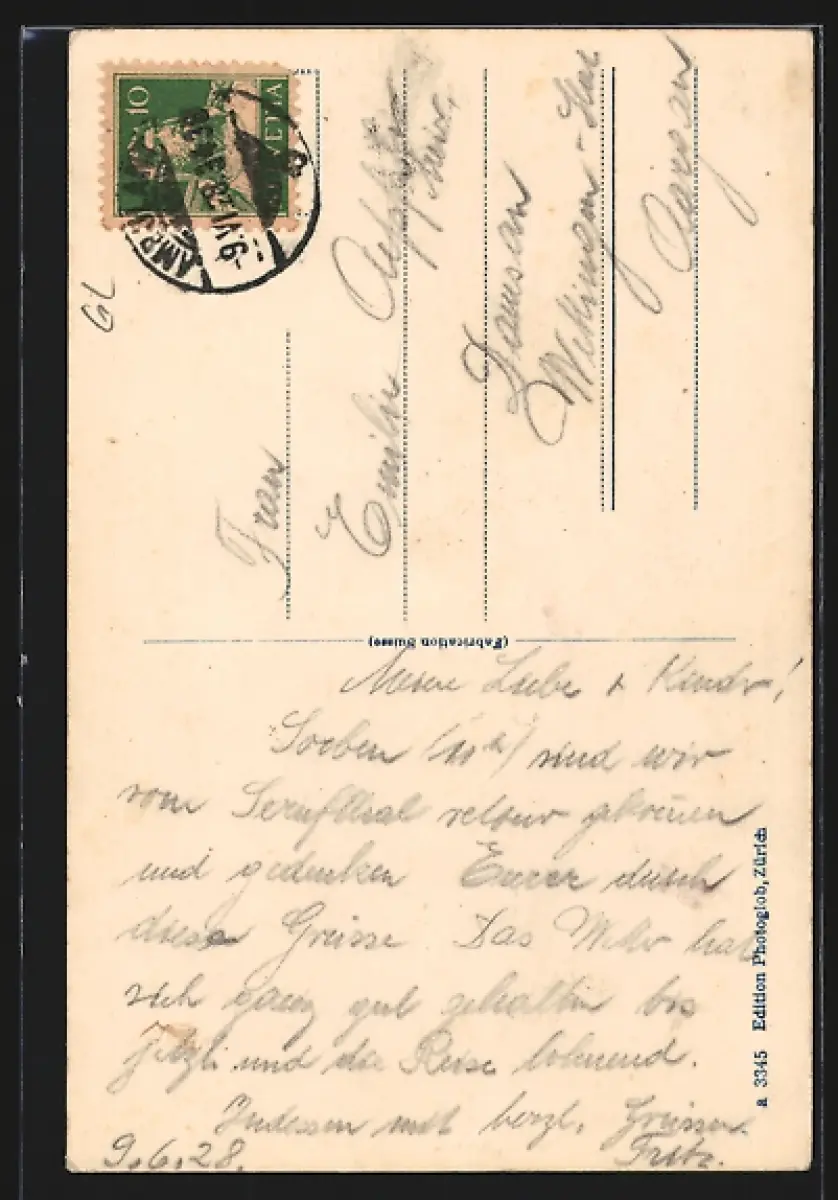 10
HELVETIA
-9.VI.28
GL
Frau
Emilie
Wettingen-
Aargau
(Fabrication Suisse)
Meine Liebe & Kinder!
Soeben sind wir
vom Sernfthal retour gekommen
und gedenken Eurer durch
diese Grüsse Das Wetter hat
sich ganz gut gehalten bis
jetzt und die Reise lohnend.
Indessen mit herzl. Grüssen
Fritz.
9.6.28.
a 3345 Edition Photoglob, Zürich